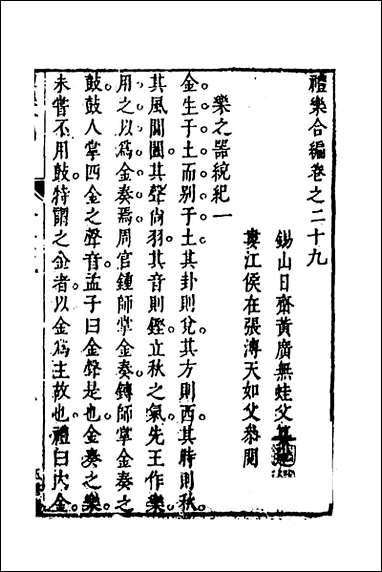 禮樂合編卷之二十九
錫山日齋黃廣無蛙父
婁江侯在張溥天如父叅閱
樂之器統紀一
金生于土而别于土其卦則兊其方則西其時則秋
其風閶闔其聲尚羽其音則鏗立秋之氣先王作樂
用之以爲金奏焉周官鍾師掌金奏鎛師掌金奏之
鼓鼓人掌四金之聲音孟子曰金聲是也金奏之樂
未嘗不用鼓特謂之金者以金爲主故也禮曰内金